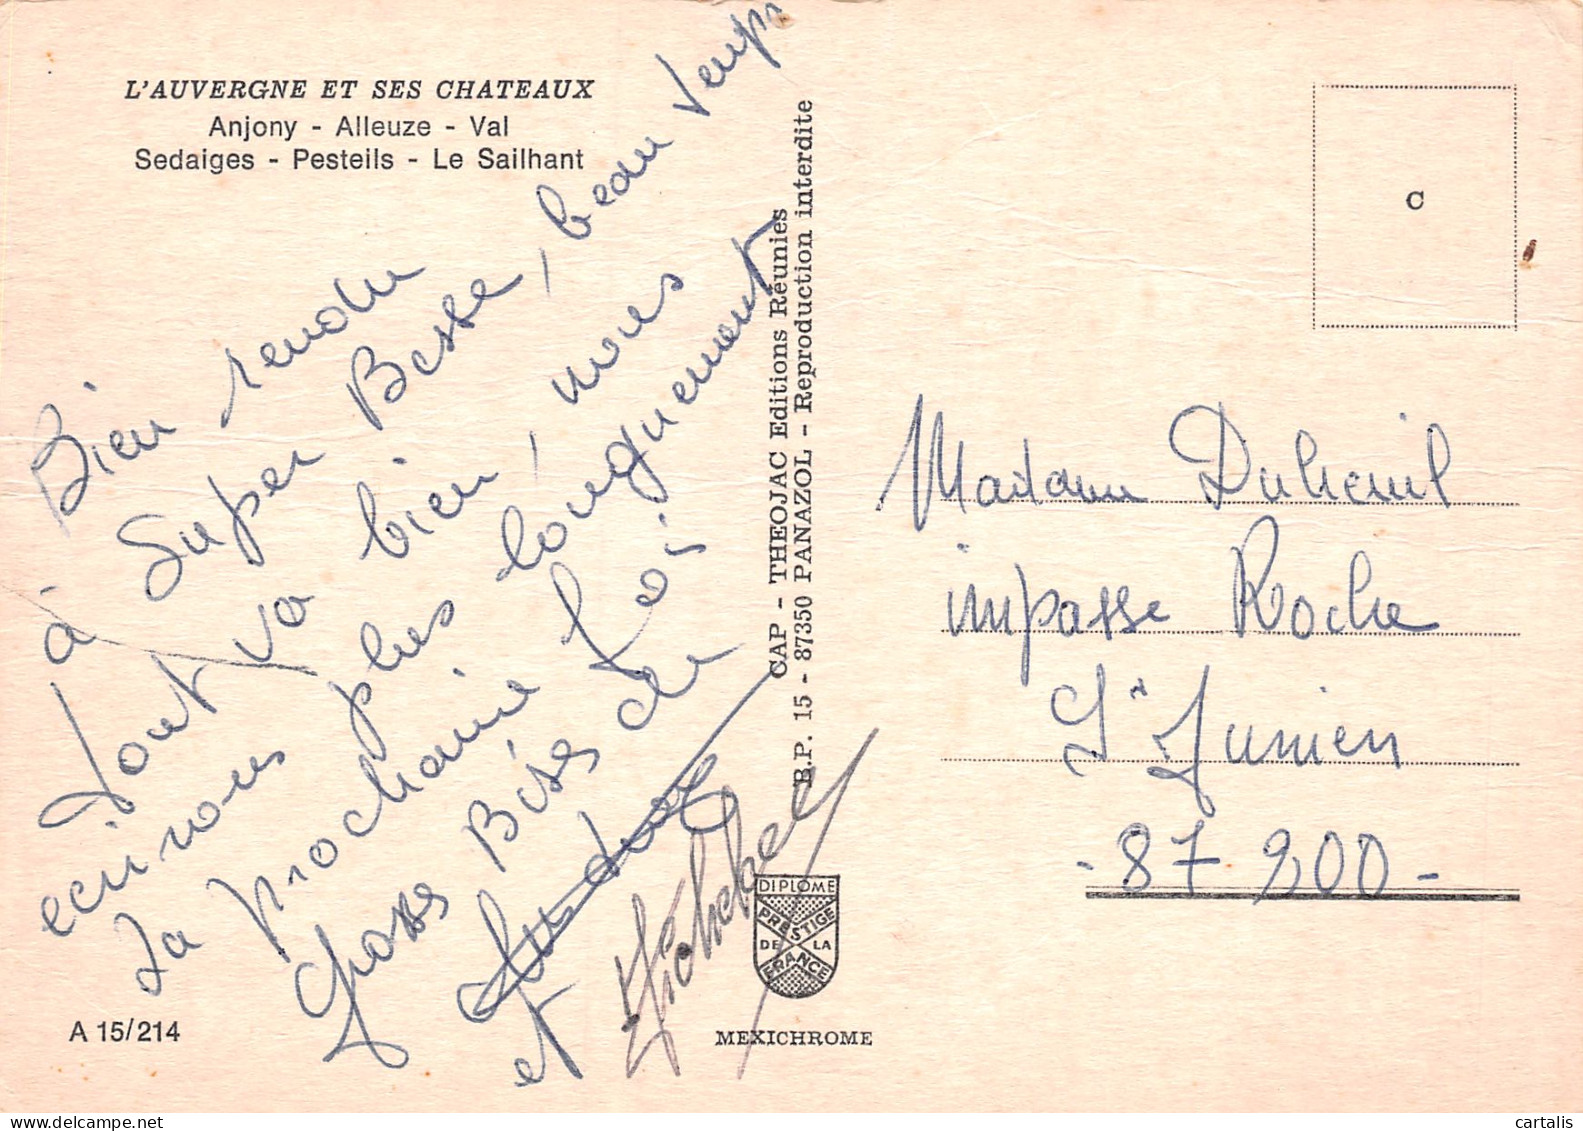 L'AUVERGNE ET SES CHATEAUX
Anjony - Alleuze - Val
Sedaiges - Pesteils - Le Sailhant
Bien rendu
à Super Besse, beau temps
Tout va bien, nous
ecrirons plus longuement
la prochaine fois
Grosses Bises du
et Michel
A 15/214
CAP - THEOJAC Editions Réunies
B.P. 15 - 87350 PANAZOL - Reproduction interdite
DIPLOME
PRESTIGE
DE LA
FRANCE
MEXICHROME
C
Madame Duheuil
impasse Roche
St Junien
- 87 200 -
cartalis